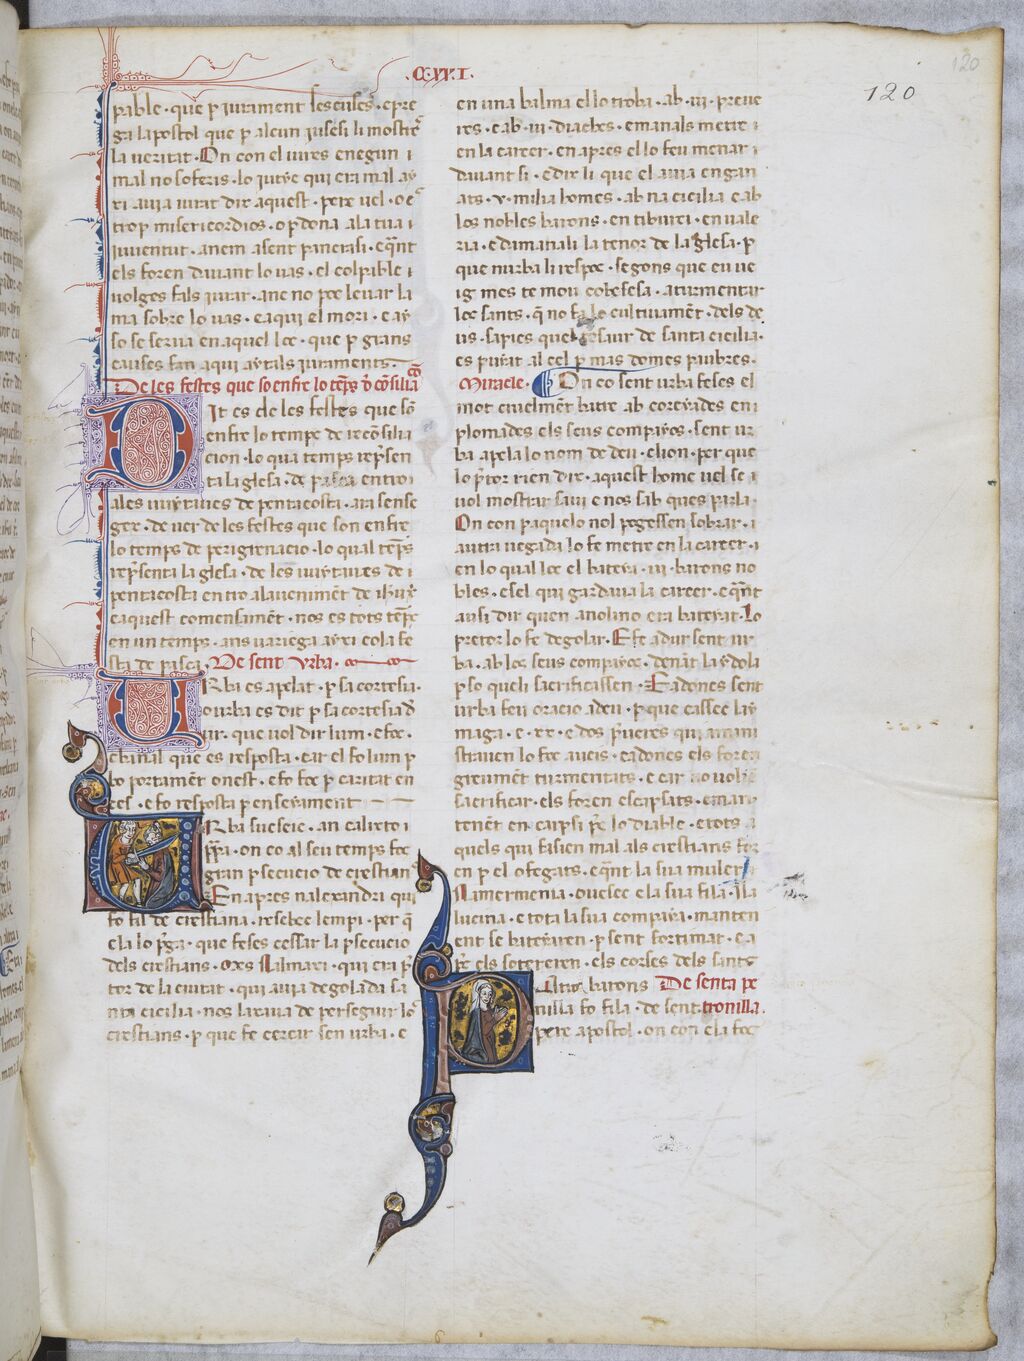 .C.XX.I.
120
120
pable · que p iurament se scuses · e pre
ga lapostol que p alcun iusesi li mostre
la ueritat · On con el iures en egun i
mal no soferis · lo iutye qui era mal ay
xi auia iurat dir aquest · pere uel · o es
trop misericordios · o pdona a la tua i
iuuentut · anem a sent pancrasi · e qnt
els foren dauant lo uas · el colpible i
uolges fals iurar · anc no poc leuar la
ma sobre lo uas · e aqui el mori · e ay
so se serua en aquel loc · que p grans
causes fan aqui aytals iuraments.
De les festes que so enfre lo teps d consilia
cio
Dit es de les festes que so
enfre lo temps de reconsilia
cion · lo qua temps repsen
ta la glesa · de pasca entro i
a les uuytaues de pentacosta · ara sense
gex · de uer de les festes que son enfre
lo temps de perigrenacio · lo qual teps
repsenta la glesa · de les uuytaues de i
pentacosta entro alaueniment de ihu xt
e aquest comensament · nos es tots temps
en un temps · ans uariega ayxi co la fe
sta de pasca. De sent Vrba.
Vrba es apelat · p sa cortesia ·
o urba es dit p sa cortesia d
ur · que uol dir lum · e foc ·
e banal que es resposta · car el fo lum p
bo portament onest · e fo foc p caritat en
ces · e fo resposta p enseyament
Vrba sucseic · an calixto i
ppa · on co al seu temps fos
gran psecucio de crestian
En apres nalexandri qui
fo fil de crestiana · resebec lempi · per q
e la lo pga · que feses cessar la psecucio
dels crestians · Mes Nalmaxi · qui era p
tor de la ciutat · qui auia degolada sa
nta cicilia · nos laxaua de perseguir los
crestians · p que fe cercar sen urba · e
en una balma el lo troba · ab · iii · preue
res · e ab · iii · diaches · e manals metre i
en la carcer · en apres el lo feu menar i
dauant si · e dir li que el auia engan
ats · v · milia homes · ab na cicilia e ab
los nobles barons · en tiburci · en uale
ria · e damanali la tenor de la glesa · p
que nurba li respos · segons que eu ue
ig mes te mou cobesesa · a turmentar
los sants · q no fa lo cultiuament · dels de
us · sapies que l tesaur de santa cicilia ·
es puiat al cel p mas domes paubres.
Miracle. On co sent urba feses el
mot cruelment batre ab coreyades em
plomades els seus companyos · sent ur
ba apela lo nom de deu · elion · per que
lo ptor rien dix · aquest home uel se i
uol mostrar saui e nos sab ques parla ·
On con p aquelo nol pogessen sobrar · i
autra uegada lo fe metre en la carcer · i
en lo qual loc el bateya · iii · barons no
bles · e sel qui gardaua la carcer · e qnt
ausi dir quen anolino era bateyat · Lo
pretor lo fe degolar · E fe adur sent ur
ba · ab los seus companyos · denant la ydola
p so quels sacrificassen · E adones sent
urba feu oracio a deu · p que cassec lay
maga · e · xx · e dos preueres qui amini
strauen lo foc aucis · e adones els foren
greument turmentats · e car no uolie
sacrificar · els foren escapsats · e man
tenent en carpsi pres lo diable · e tots a
quels qui fasien mal als crestians fo
en p el ofegats · e qnt la sua muler
Narmermia · o uesec e la sua fila · Na
lucina · e tota la sua companya · manten
ent se bateyaren · p sent fortimat · e a
pres els soteraren · els corses dels sants
Altra barons De senta pe
nilla fo fila · de sent tronilla.
pere apostol · on con ela fos